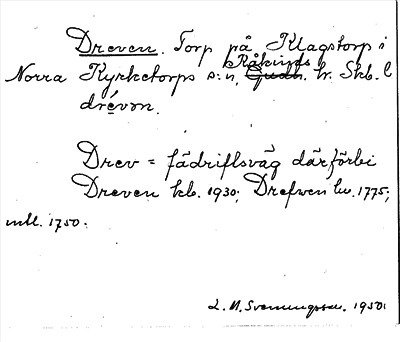 Dreven. Torp på Klagstorp i
Norra Kyrketorps s:n, Kåkinds h. Skb. l
drévon.
Drev = fädriftsväg därförbi
Dreven kb. 1930; Drefwen hu. 1775;
mtl. 1750.
L. M. Svenungsson. 1950.